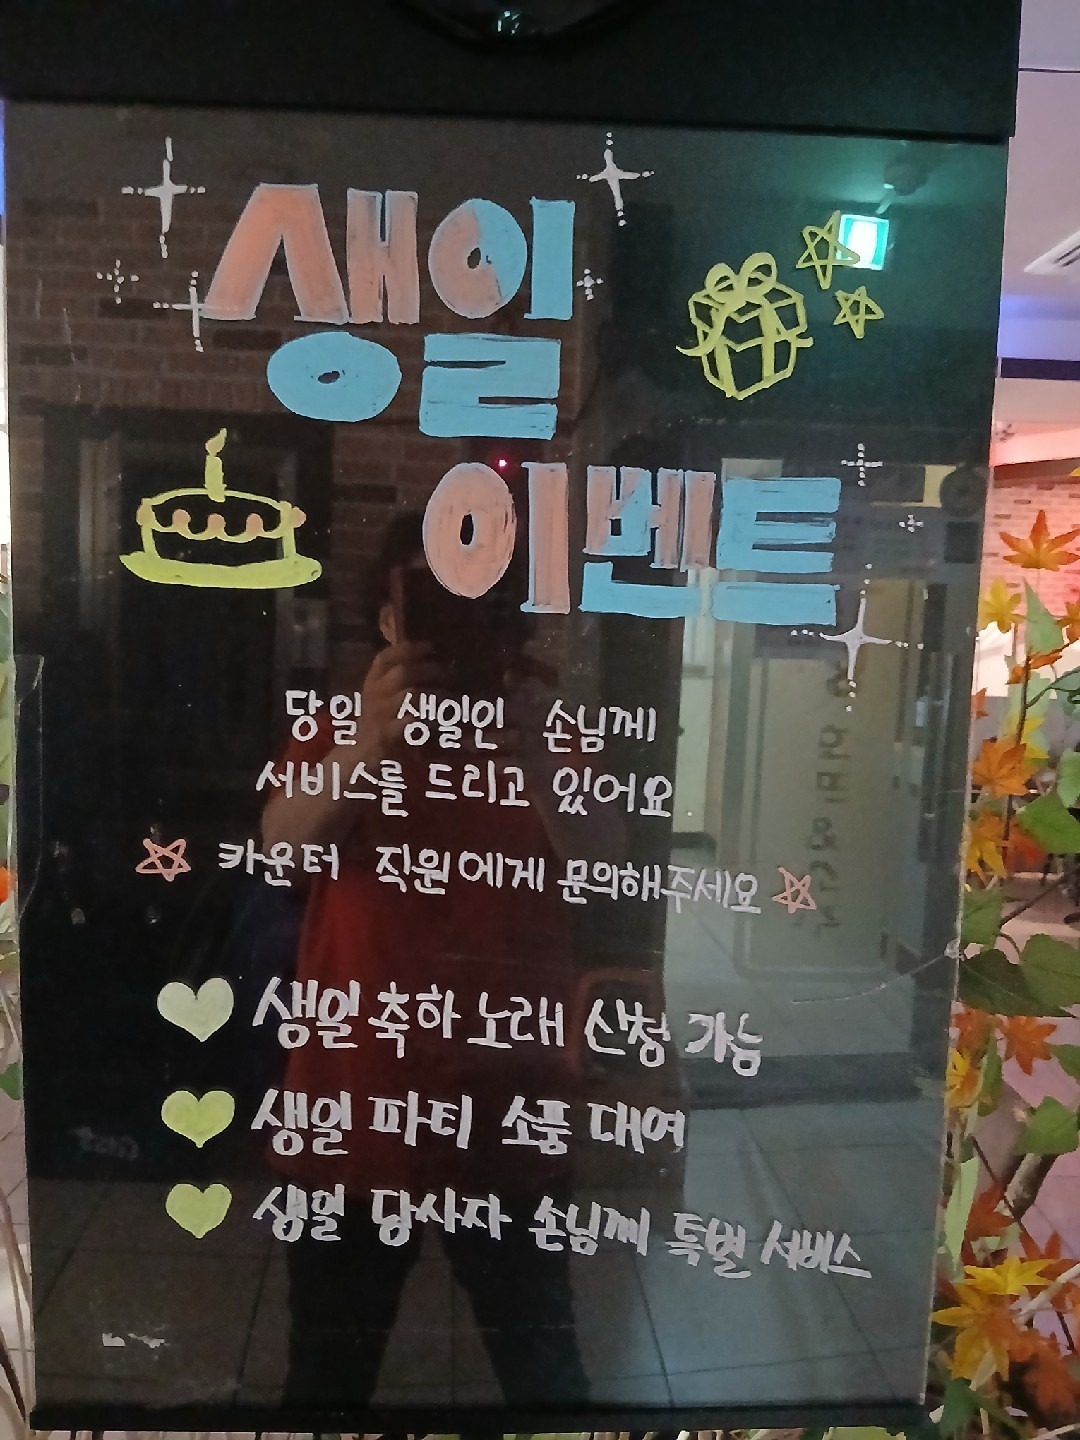 생일
이벤트
당일 생일인 손님께
서비스를 드리고 있어요
카운터 직원에게 문의해주세요
생일축하 노래 신청 가능
생일 파티 소품 대여
생일 당사자 손님께 특별 서비스